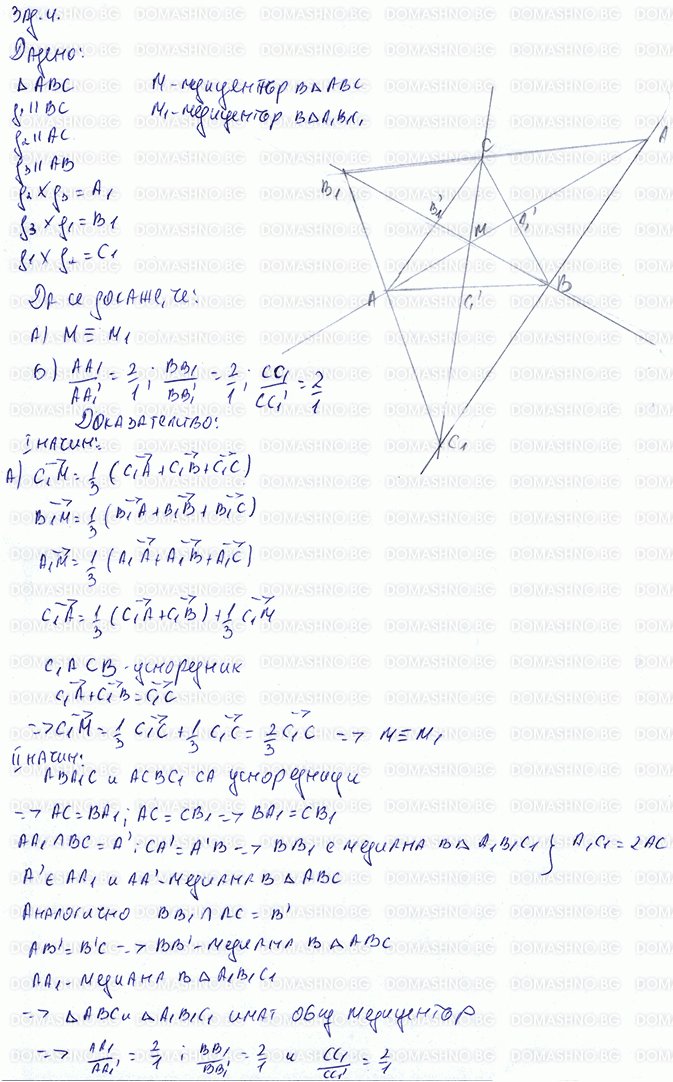 Зад. 4.
Дадено:
△ABC M - медицентър в △ABC
g₁ || BC M₁ - медицентър в △A₁B₁C₁
g₂ || AC
g₃ || AB
g₂ × g₃ = A₁
g₃ × g₁ = B₁
g₁ × g₂ = C₁
Да се докаже, че:
А) M ≡ M₁
б) AA₁/AA₁' = 2/1; BB₁/BB₁' = 2/1; CC₁/CC₁' = 2/1
Доказателство:
I начин:
А) C₁M→ = 1/3 (C₁A→ + C₁B→ + C₁C→)
B₁M→ = 1/3 (B₁A→ + B₁B→ + B₁C→)
A₁M→ = 1/3 (A₁A→ + A₁B→ + A₁C→)
C₁A→ = 1/3 (C₁A→ + C₁B→) + 1/3 C₁M→
C₁ACB - успоредник
C₁A→ + C₁B→ = C₁C→
=> C₁M→ = 1/3 C₁C→ + 1/3 C₁C→ = 2/3 C₁C→ => M ≡ M₁
II начин:
ABA₁C и ACBC₁ са успоредници
=> AC = BA₁; AC = CB₁ => BA₁ = CB₁
AA₁ ∩ BC = A'; CA' = A'B => BB₁ е медиана в △A₁B₁C₁ } A₁C₁ = 2AC
A' ∈ AA₁ и AA' - медиана в △ABC
Аналогично BB₁ ∩ AC = B'
AB' = B'C => BB' - медиана в △ABC
AA₁ - медиана в △A₁B₁C₁
=> △ABC и △A₁B₁C₁ имат общ медицентър
=> AA₁/AA₁' = 2/1; BB₁/BB₁' = 2/1 и CC₁/CC₁' = 2/1
C
A
B₁
B₁'
A₁'
M
A
C₁'
B
C₁
DOMASHNO.BG